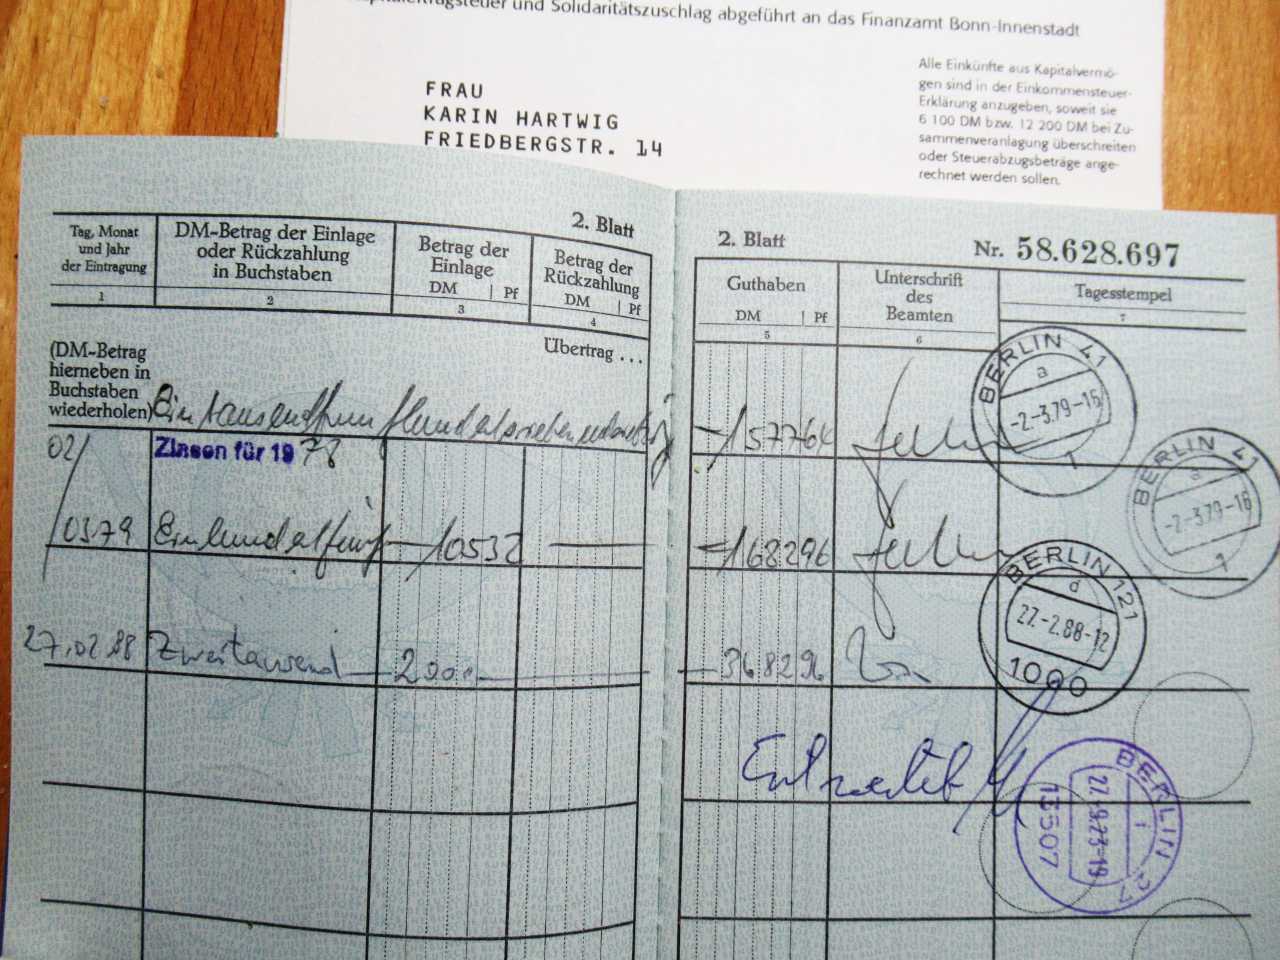 und Solidaritätszuschlag abgeführt an das Finanzamt Bonn-Innenstadt
Alle Einkünfte aus Kapitalvermö-
gen sind in der Einkommensteuer-
Erklärung anzugeben, soweit sie
6 100 DM bzw. 12 200 DM bei Zu-
sammenveranlagung überschreiten
oder Steuerabzugsbeträge ange-
rechnet werden sollen.
FRAU
KARIN HARTWIG
FRIEDBERGSTR. 14
2. Blatt
Tag, Monat
und Jahr
der Eintragung
1
DM-Betrag der Einlage
oder Rückzahlung
in Buchstaben
2
Betrag der
Einlage
DM | Pf
3
Betrag der
Rückzahlung
DM | Pf
4
(DM-Betrag
hierneben in
Buchstaben
wiederholen)
Übertrag . . .
02/
Zinsen für 1978
0379 Einhundertfünf — 10532
27.02.88 Zweitausend — 2000.-
2. Blatt
Nr. 58.628.697
Guthaben
DM | Pf
5
Unterschrift
des
Beamten
6
Tagesstempel
7
157764
168296
368296
Entwertet
BERLIN 41
a
-2.-3.79-16
1
BERLIN 41
a
-2.-3.79-16
1
BERLIN 121
d
27.-2.88-12
1000
BERLIN 27
13507